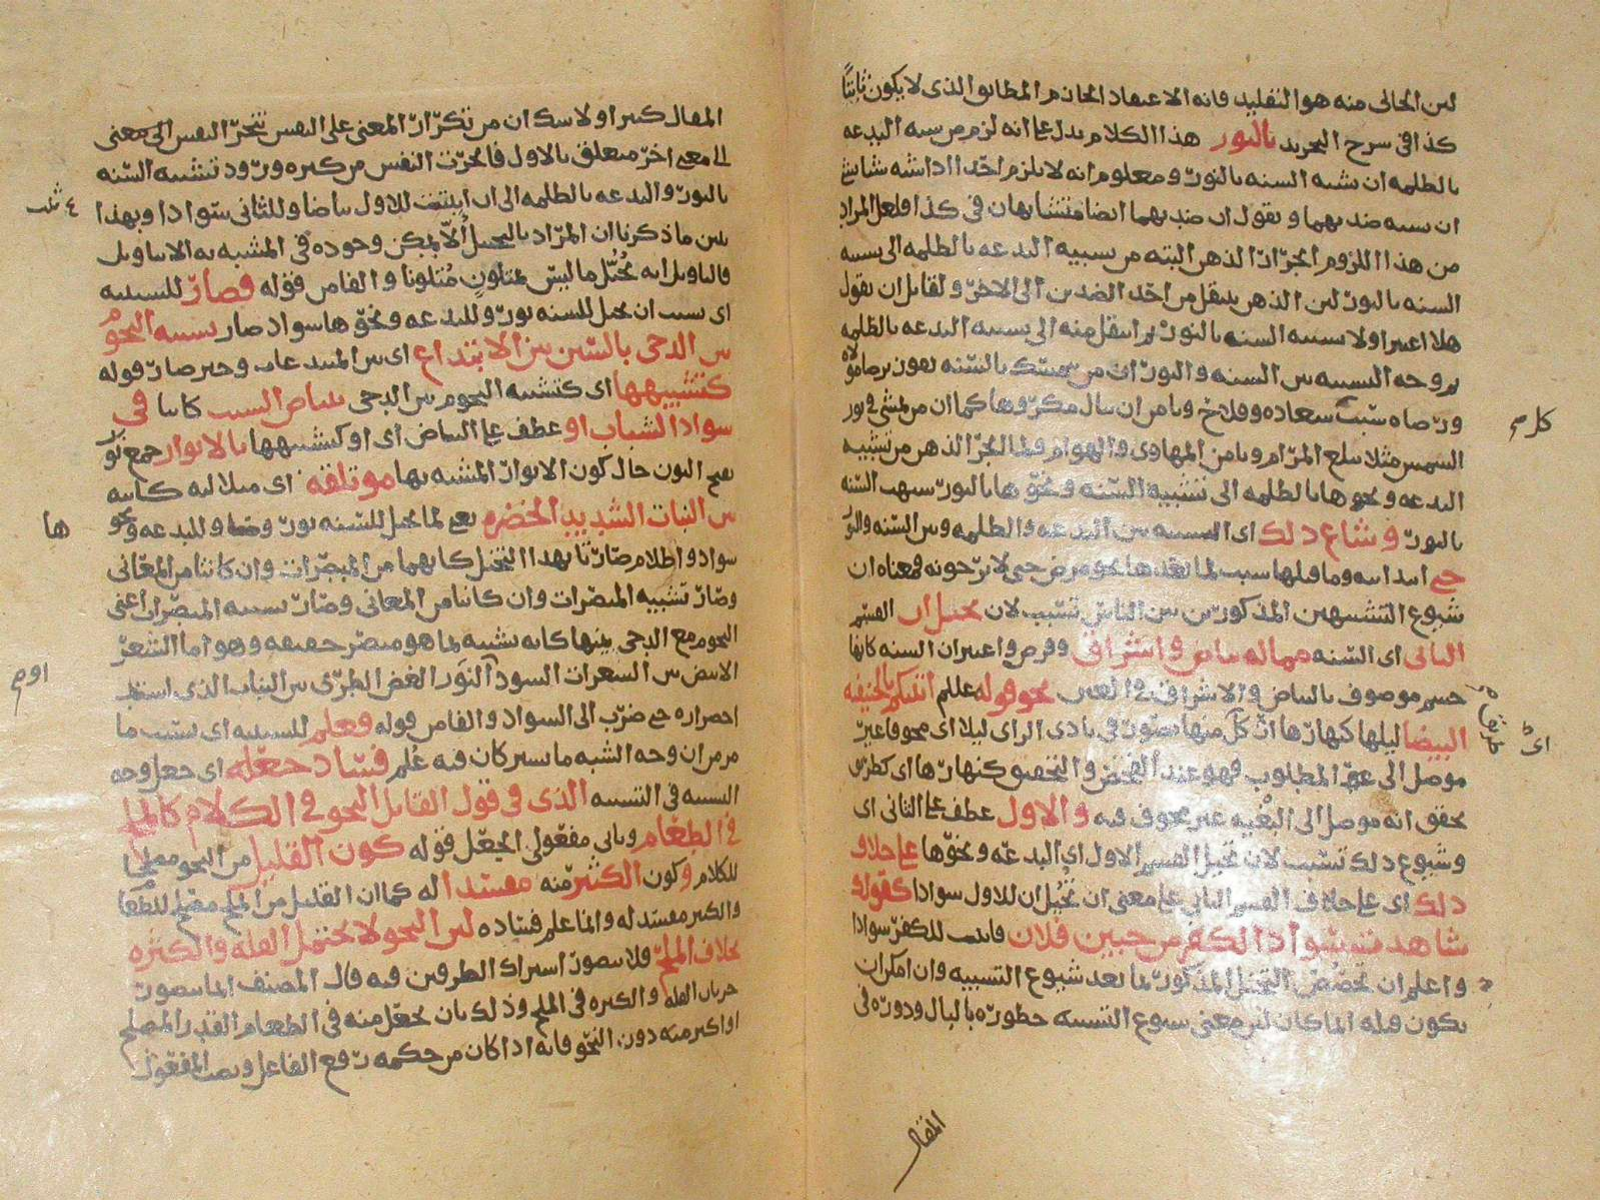 لان الخالى منه هو التقليد فانه الاعتقاد الجازم المطابق الذى لا يكون ثابتا
كذا فى شرح التجريد بالنور هذا الكلام يدل على انه لزم من شبه البدعه
بالظلمه ان شبه السنه بالنور و معلوم انه لا يلزم احد اذا شبه شيا بشى
ان يشبه ضد بهما و نقول ان ضد بهما ايضا متشابهان فى كذا و لعل المراد
من هذا اللزوم انجرار الذهن البته من تشبيه البدعه بالظلمه الى تشبيه
السنه بالنور لان الذهن ينتقل من احد الضدين الى الاخر و لقائل ان يقول
هلا اعتبر اولا تشبيه السنه بالنور ثم انتقل منه الى تشبيه البدعه بالظلمه
ثم وجه التشبيه بين السنه والنور ان من يتمسك بالسنه يفوز برضا مولاه
و رضاه سبب سعاده و فلاح و يامن ان ينال مكروها كما ان من يمشى فى نور
الشمس مثلا يبلغ المرام و يامن المهاوى والهوام فلما انجر الذهن من تشبيه
البدعه و نحوها بالظلمه الى تشبيه السنه و نحوها بالنور شبهت السنه
بالنور و شاع ذلك اى التشبيه بين البدعه والظلمه و بين السنه والنور
حتى ابتدائيه و ما قبلها سبب لما بعدها نحو مرض حتى لا يرجونه فمعناه ان
شيوع التشبيهين المذكورين بين الناس تسبب لان تخيل ان القسم
الثانى اى السنه مما له بياض و اشراق و فرض و اعتبر ان السنه كانها
جسم موصوف بالبياض والاشراق فى العين نحو قوله عللم اتيتكم بالحنيفيه
البيضا ليلها كنهارها اى كل منها بصور فى بادى الراى ليلا اى نحوفا غير
موصل الى المطلوب فهو عند الفحص والتحقيق كنهارها اى كطريق
تحقق انه موصل الى البغيه غير مخوف فيه و الاول عطف على الثانى اى
و شيوع ذلك تسبب لان تخيل القسم الاول اى البدعه و نحوها على خلاف
ذلك اى على خلاف القسم الثانى على معنى ان تخيل ان للاول سوادا كقولك
شاهدت سواد الكفر من جبين فلان فاثبت للكفر سوادا
و اعلم ان تخصيص التخيل المذكور بما بعد شيوع التشبيه وان امكن ان
يكون قبله انما كان لان معنى شيوع التشبيه خطوره بالبال و دوره فى
المقال
كلام
اى
المقال كثيرا و لا شك ان من تكرار المعنى على النفس تنجر النفس الى معنى
الى معنى اخر متعلق بالاول فانجرت النفس من كثره ورود تشبيه السنه
بالنور والبدعه بالظلمه الى ان اثبتت للاول بياضا و للثانى سوادا و بهذا
تبين ما ذكرنا ان المراد بالتخيل الا يمكن وجوده فى المشبه به الا بتاويل
فالتاويل انه تخيل ما ليس بمتلون متلونا والفا من قوله فصار للسببيه
اى بسبب ان تخيل للسنه نور و للبدعه و نحوها سواد صار تشبيه النجوم
بين الدجى بالسنن بين الابتداع اى بين المبتدعات و خبر صار قوله
كتشبيهها اى كتشبيه النجوم بين الدجى ببياض الشيب كائنا فى
سواد الشباب او عطف على البياض اى او كتشبيهها بالانوار جمع نور
بفتح النون حال كون الانوار المشبه بها موتلقه اى متلالئه كائنه
بين النبات الشديد الخضره يعنى لما تخيل للسنه نور و ضيا و للبدعه و نحو
سواد و اظلام صارتا بهذا التخيل كانهما من المبصرات وان كانتا من المعانى
و صار تشبيه المبصرات وان كانتا من المعانى و صار تشبيه المبصرات اعنى
النجوم مع الدجى بينها كانه تشبيه بما هو مبصر حقيقه و هو اما الشعر
الابيض بين الشعرات السود او النور الغض الطرى بين النبات الذى اشتد
اخضراره حتى ضرب الى السواد والفا من قوله فعلم للسببيه اى بسبب ما
مر من ان وجه الشبه ما يشتركان فيه علم فساد جعله اى جعل وجه
الشبه فى التشبيه الذى فى قول القائل النحو فى الكلام كالملح
فى الطعام و ثانى مفعولى الجعل قوله كون القليل من النحو مصلحا
للكلام و كون الكثير منه مفسدا له كما ان القليل من الملح مصلح للطعام
والكثير مفسد له وانما علم فساده لان النحو لا يحتمل القله والكثره
بخلاف الملح فلا يتصور اشتراك الطرفين فيه قال المصنف انما يتصور
جريان القله والكثره فى الملح و ذلك بان يجعل منه فى الطعام القدر المصلح
او اكثر منه دون النحو فانه اذا كان من حكمه رفع الفاعل و نصب المفعول
ها